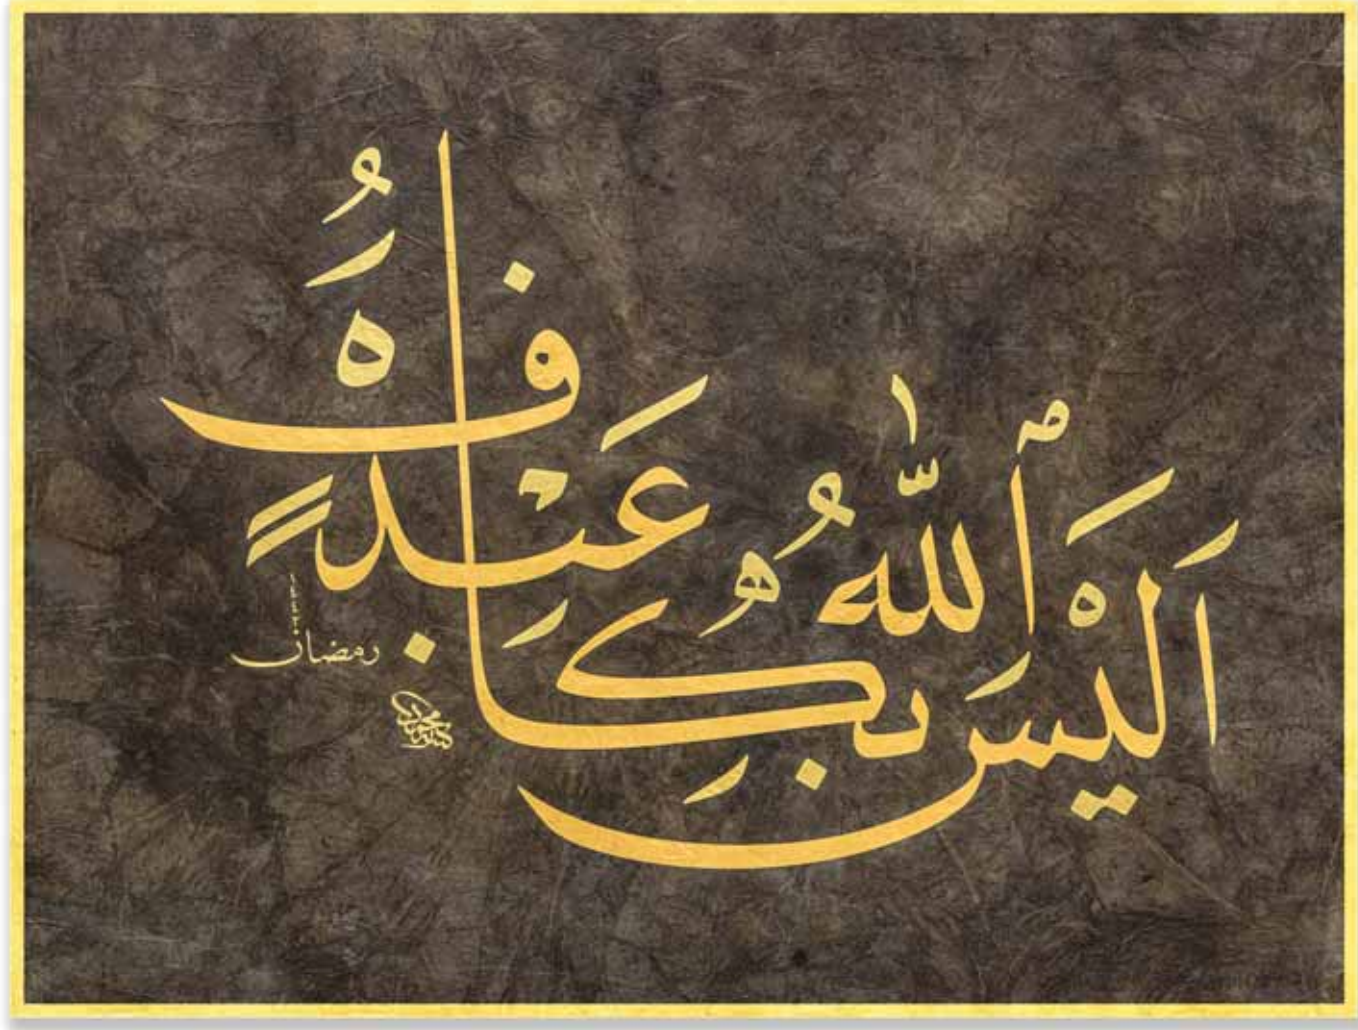 أَلَيْسَ ٱللَّهُ بِكَافٍ عَبْدَهُ
رمضان